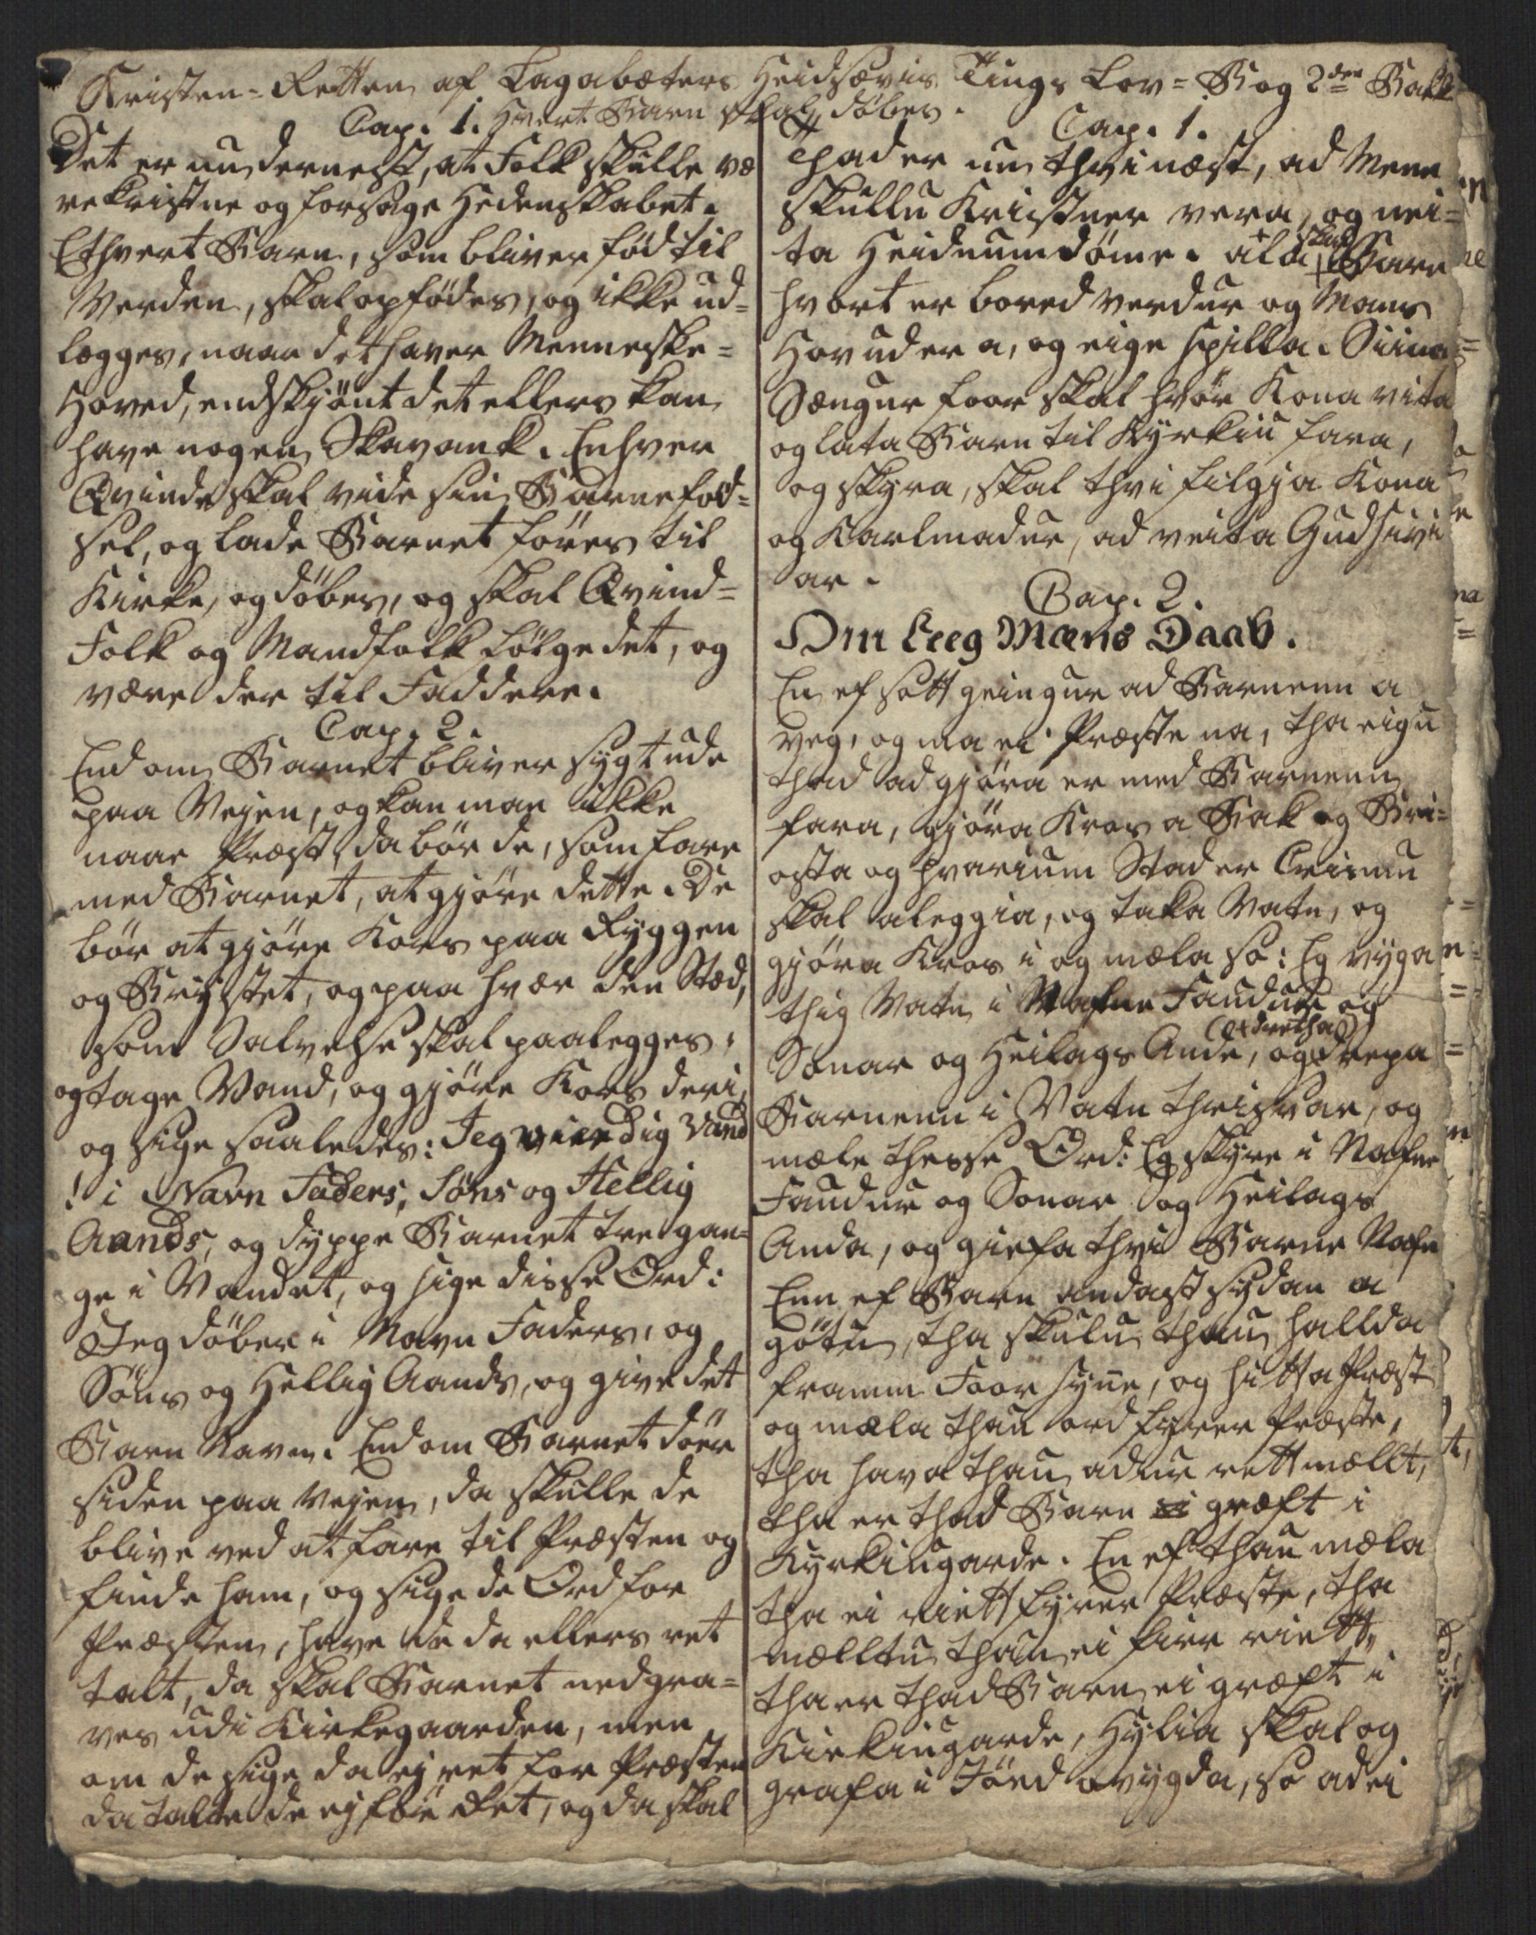 Kristen-Retten af Lagabøters Heidsævis Tings Lov-Bog 2den Balk
Cap. 1. Hvert Barn skal døbes.
Det er nu dernest, at Folk skulle væ
re kristne og forsage Hedenskabet.
Ethvert Barn, som bliver fød til
Verden, skal opfødes, og ikke ud-
lægges, naar det haver Menneske-
Hoved, endskjönt det ellers kan
have nogen Skavank. Enhver
Qvinde skal vide sin Barnefød-
sel, og lade Barnet föres til
Kirke, og döbes, og skal Qvind-
Folk og Mandfolk følge det, og
være der til Faddere.
Cap. 2.
End om Barnet bliver sygt ude
paa Vejen, og kan man ikke
naae Præst, da bör de, som fare
med Barnet, at gjöre dette. De
bör at gjöre Kors paa Ryggen
og Brystet, og paa hver den Stæd,
som Salvelse skal paalegges,
og tage Vand, og gjöre Kors deri,
og sige saaledes: Jeg vier dig Vand
! i Navn Faders, Søns og Hellig
Aands, og dyppe Barnet tre gan-
ge i Vandet, og sige disse Ord:
Jeg döber i Navn Faders, og
Söns og Hellig Aands, og give det
Barn Navn. End om Barnet döer
siden paa Vejen, da skulle de
blive ved at fare til Præsten og
finde ham, og sige de Ord for
Præsten, have de da ellers ret
talt, da skal Barnet nedgra-
ves udi Kirkegaarden, men
om de sige da ej ret for Præsten
da talte de ej för ret, og da skal
Cap. 1.
Thad er nu thvi næst, ad Menn
skullu Kristner vera, og nei-
ta Heidnumdöme. ala skal Barn
hvort er bored verdur og Mans
Hovud er a, og eige spilla. Siina
Sængur foor skal hvör Kona vita
og lata Barn til Kyrkiu fara,
og skyra, skal thvi filgja Kona
og Karlmadur, ad veita Gudsivi
ar.
Cap. 2.
Om Leeg Mæns Daab.
En ef sott geingur ad Barnenn a
Veg, og ma ei Præste na, tha eigu
thad ad gjöra er med Barnenn
fara, gjöra Kros a Bak og Bri-
osta og hvarium Stad er Crismu
skal aleggia, og taka Vatn, og
gjöra Kros i og mæla so: Eg vyga
thig Vatn i Nafne Faudur og
Sonar og Heilags Anda, og drepa
Barnenn i Vatn thrisvar, og
mæle thesse Ord: Eg skyre i Nafne
Faudur og Sonar og Heilags
Anda, og giefa thvi Barne Nafn
Enn ef Barn andast sydan a
götu, tha skulu thau hallda
framm Foor syne, og hitta Præst
og mæla thau ord fyrer Præste,
tha hava thau adur rett mællt,
tha er thad Barn græft i
Kyrkiugarde. En ef thau mæla
tha ei riett fyrer Præste, tha
mælltu thau ei firr riett,
tha er thad Barn ei græft i
Kirkiugarde, Hylia skal og
grafa i Jörd ovygda, so ad ei